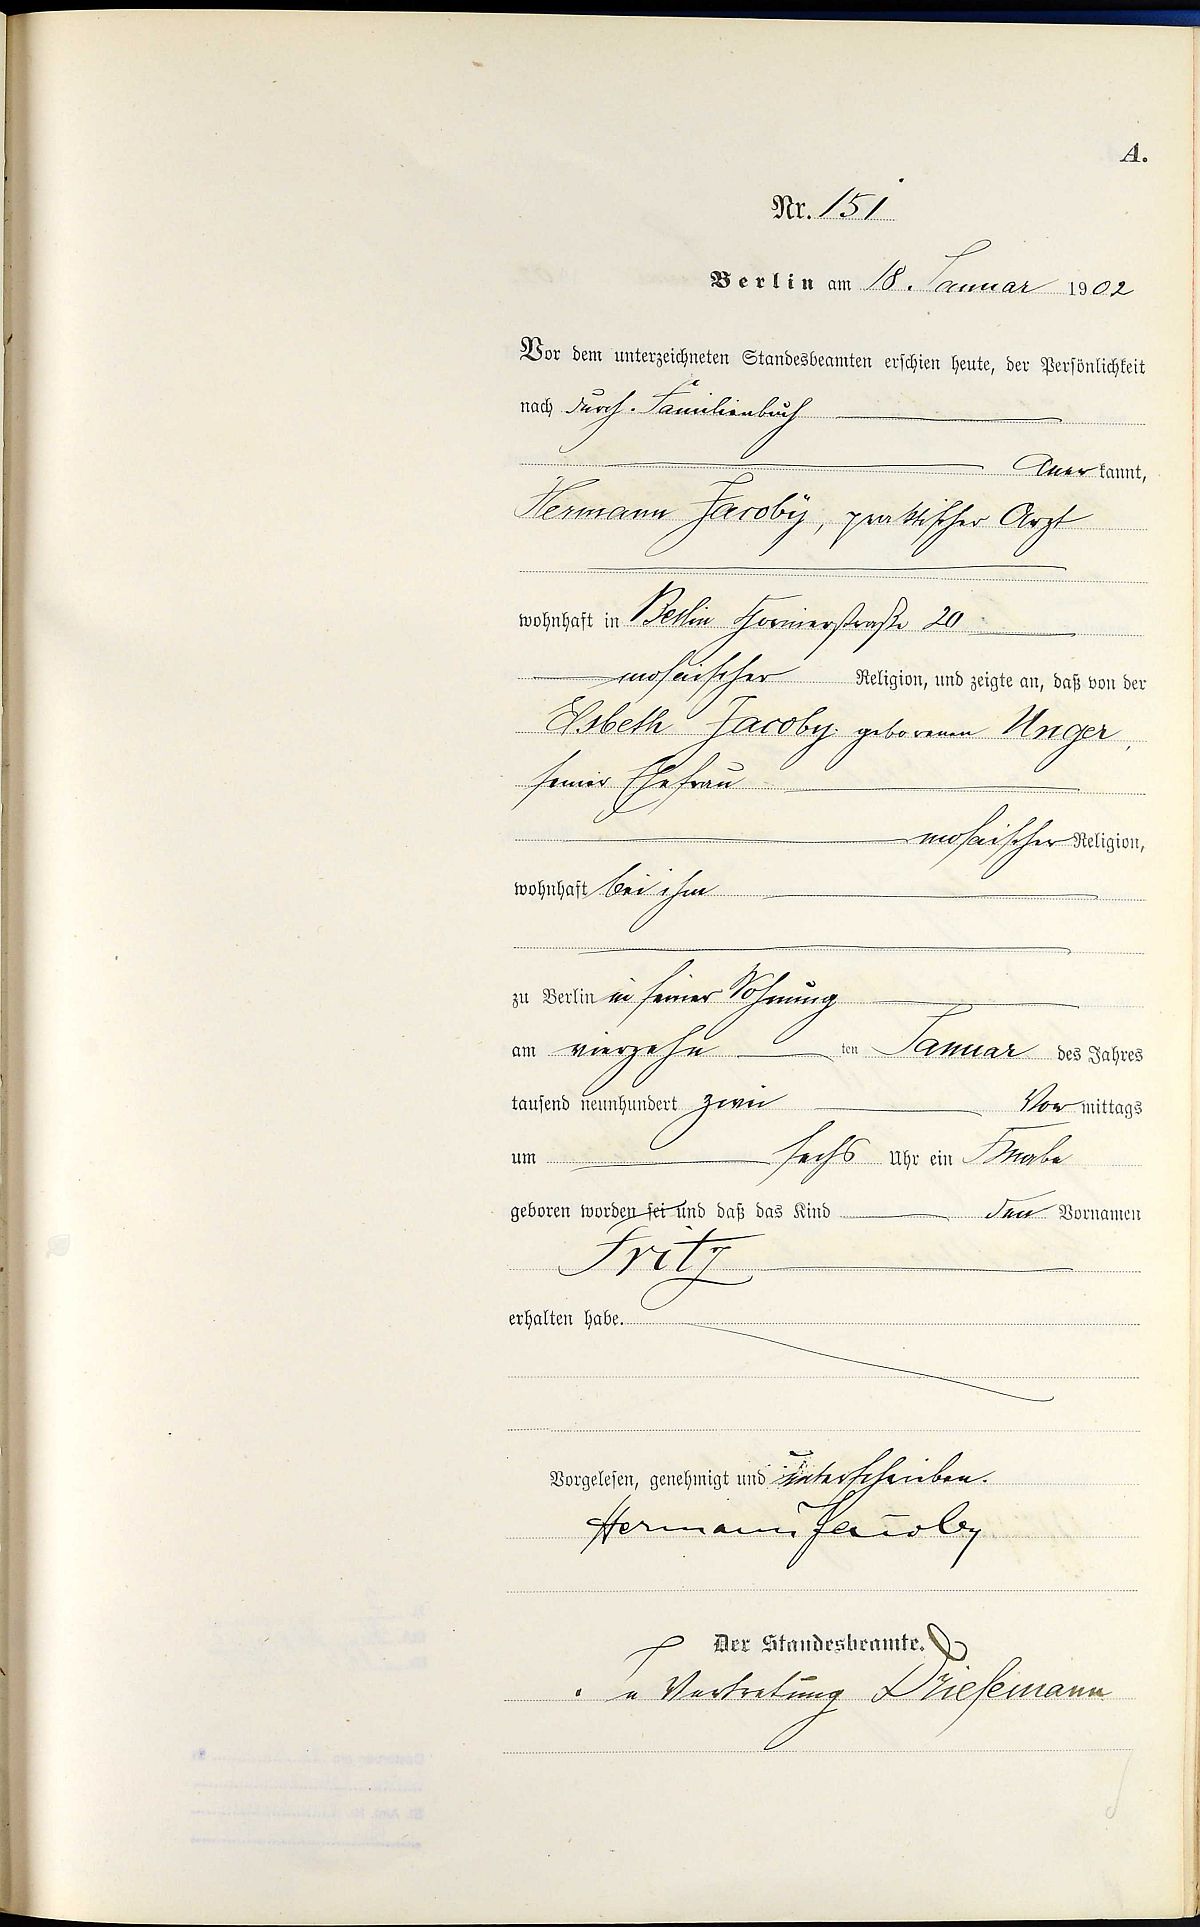 A.
Nr. 151
Berlin am 18. Januar 1902
Vor dem unterzeichneten Standesbeamten erschien heute, der Persönlichkeit
nach durch Familienbuch
kannt,
Hermann Jacoby, praktischer Arzt
wohnhaft in Berlin 20
mosaischer Religion, und zeigte an, daß von der
Elsbeth Jacoby geborenen Unger,
seiner Ehefrau
mosaischer Religion,
wohnhaft bei ihm
zu Berlin in seiner Wohnung
am vierzehn ten Januar des Jahres
tausend neunhundert zwei Vormittags
um sechs Uhr ein Knabe
geboren worden sei und daß das Kind den Vornamen
Fritz
erhalten habe.
Vorgelesen, genehmigt und unterschrieben.
Hermann Jacoby
Der Standesbeamte.
In Vertretung